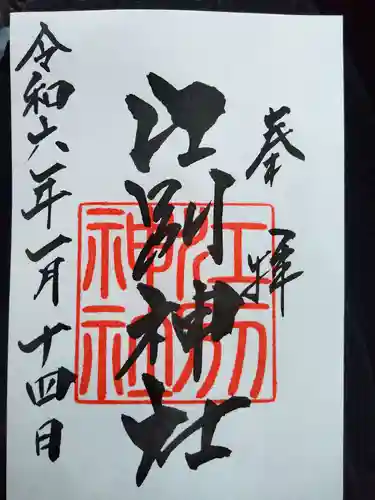 奉拝
江別神社
江別神社
令和六年一月十四日